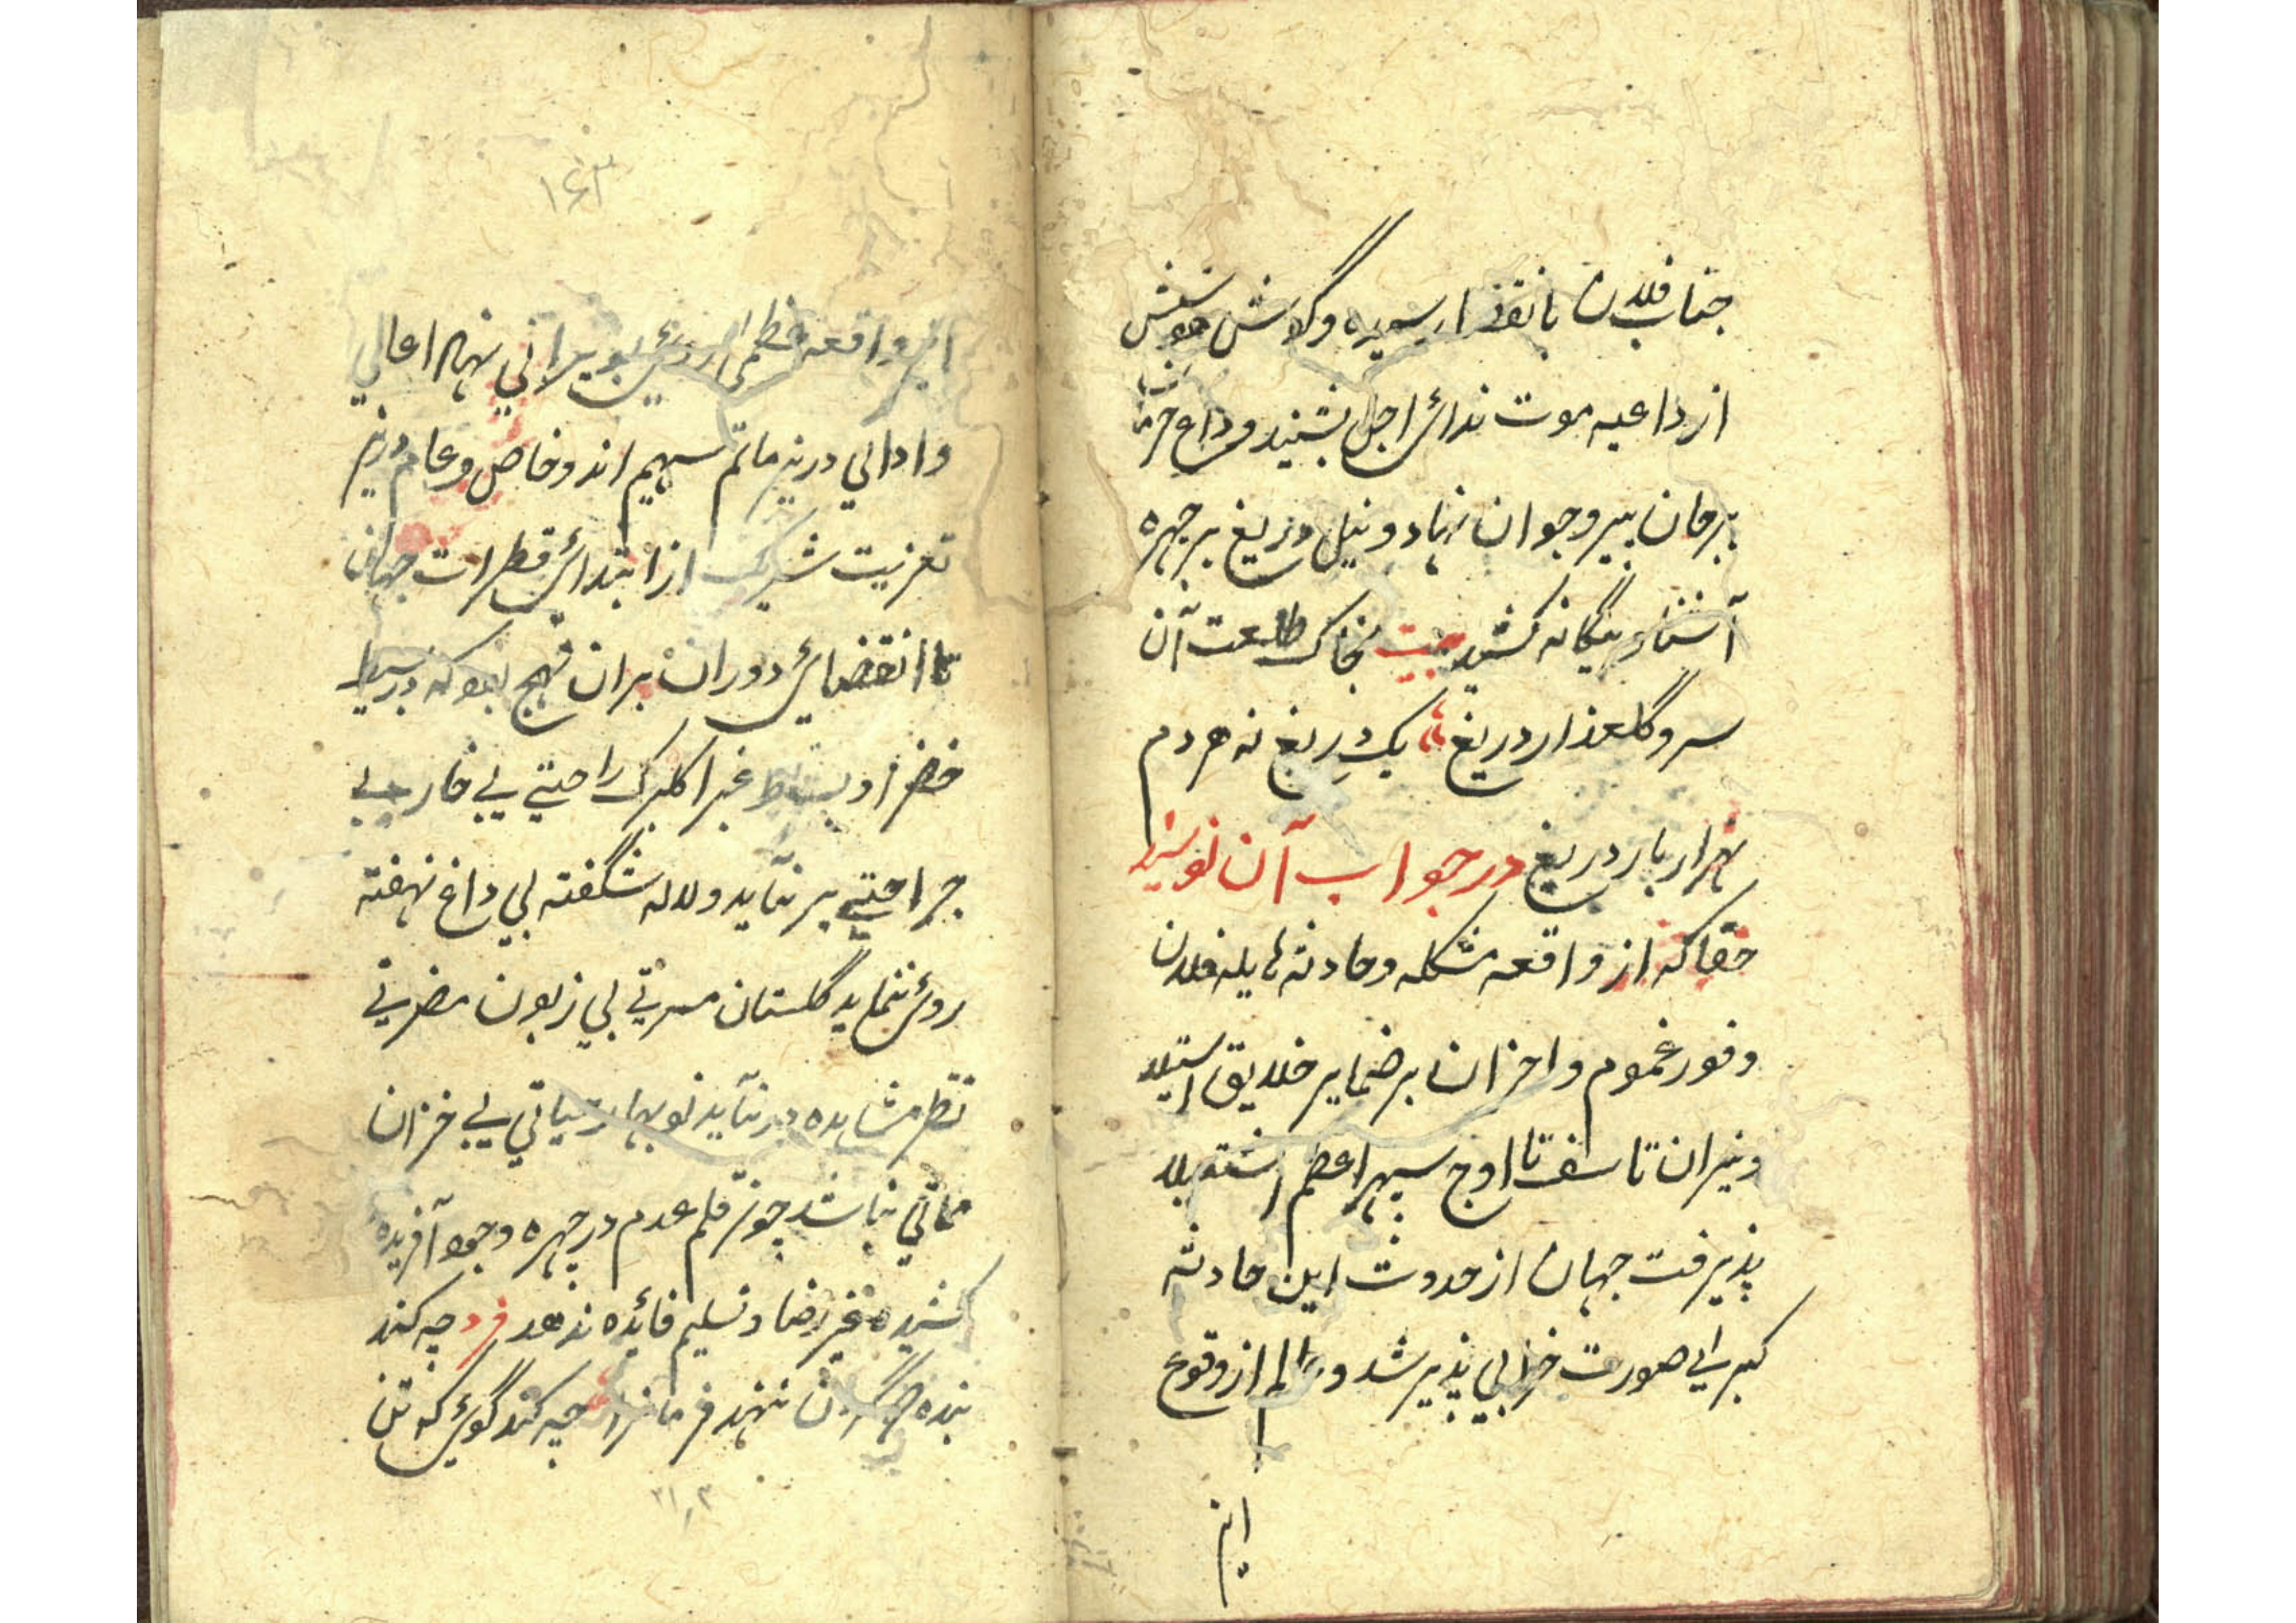 جناب فلان بانقضا رسیده و گلاش هوشش
از داعیه موت ندای اجل بشنید و داغ حرمان
بر جان پیر و جوان نهاد و نیل دریغ بر چهره
آشنا و بیگانه کشید بیت بخاک طلعت آن
سرو گلعذار دریغ یک دریغ نه هر دم
هزار بار دریغ در جواب آن نویسند
حقا که از واقعه مشکله و حادثه هایله فلان
وفور غموم و احزان بر ضمایر خلایق استیلا
و نیران تاسف تا اوج سپهر اعظم اشتعلا
پذیرفت جهان از حدوث این حادثه
کبرایی صورت خرابی پذیر شد و عالم از وقوع
این
۱۶۳
این واقعه عظمی روی بویرانی نهاد اعالی
و ادانی درین ماتم سهیم اند و خاص و عام درین
تعزیت شریک از ابتدای فطرات جهان
تا انقضای دوران بران نهج بود که در بسیط
خضرا و بساط غبرا گلبرگ راحتی بی خار بی
جراحتی بر نیاید و لاله شگفته بی داغ نهفته
روی ننماید گلستان مسرتی بی زبون مضرتی
نظر مشاهده در نیاید نوبهار حیاتی بی خزان
مماتی نباشد چون قلم عدم در چهره وجود آفریده
کشیده غیر رضا و تسلیم فائده ندهد فرد چه کند
بنده که گردن ننهد فرمانرا چه کند گوی که تن
۳۱٫۳